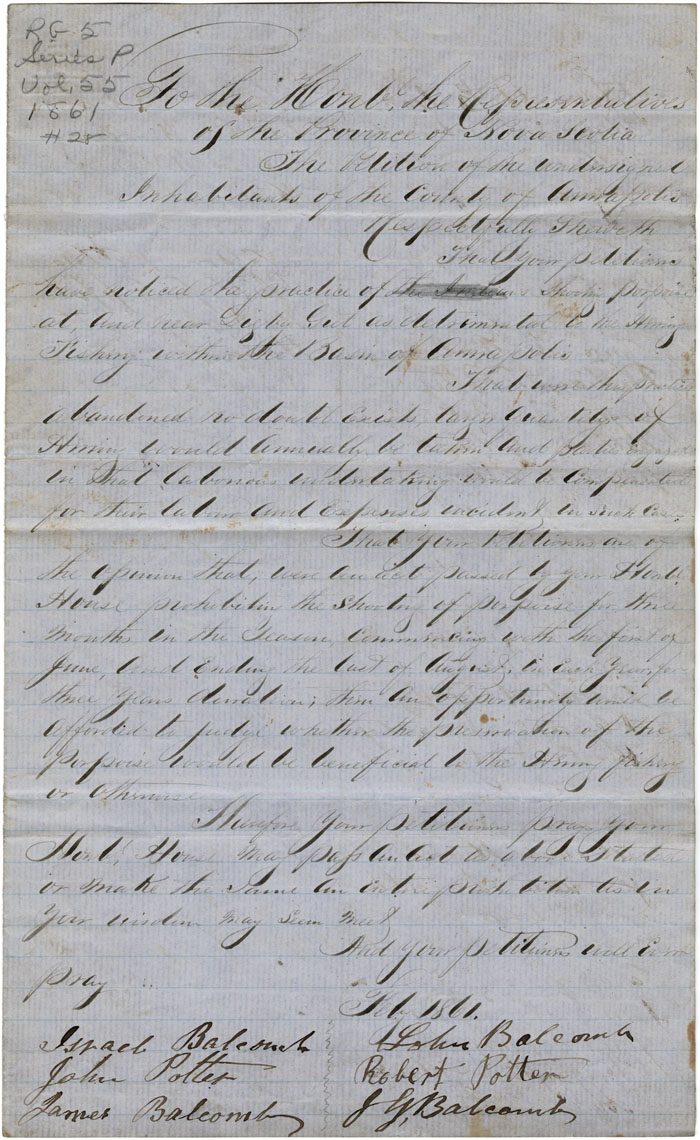 RG 5
Series P
Vol. 55
1861
# 28
To the Honbl. the Representatives
of the Province of Nova Scotia
The Petition of the undersigned
Inhabitants of the County of Annapolis
Respectfully Sheweth
That your petitioners
have noticed the practice of Shooting porpoise
at, And near Digby Gut as detrimental to the Herring
Fishing within the Basin of Annapolis
That were the practice
abandoned no doubt exists, large quantitys of
Herring would Annually be taken And parties engaged
in that laborious undertaking would be compensated
for their labour And expenses incident in such Case
That your Petitioners are of
the opinion that, were an act passed by your Honbl
House prohibiting the Shooting of porpoise for three
Months in the Season, Commencing with the first of
June, And Ending the last of August, in each Year for
three years duration; then an opportunity would be
afforded to judge whether the preservation of the
Porpoise would be beneficial to the Herring fishery
or otherwise
Therefore Your petitioners pray Your
Honbl. House May pass an Act as above Stated
or Make the Same an as in
Your wisdom May Seem Meet
And Your petitioners will ever
pray
Feby 1861.
Israel Balcomb
John Balcomb
John Potter
Robert Potter
James Balcomb
J G Balcomb